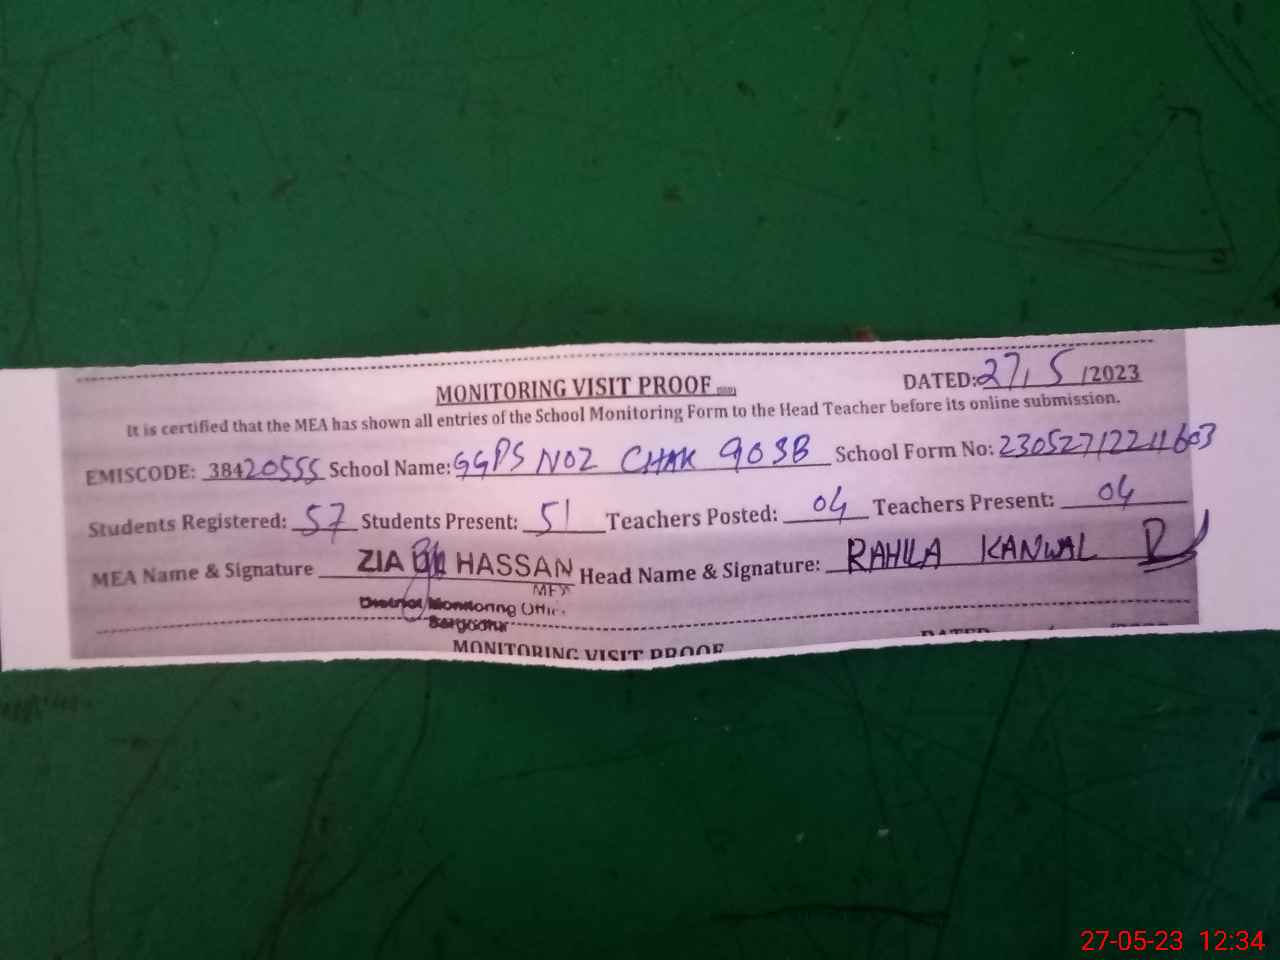 MONITORING VISIT PROOF
DATED: 27, 5 /2023
It is certified that the MEA has shown all entries of the School Monitoring Form to the Head Teacher before its online submission.
EMISCODE: 38420555 School Name: GGPS NO2 CHAK 90SB School Form No: 230527122411603
Students Registered: 57 Students Present: 51 Teachers Posted: 04 Teachers Present: 04
MEA Name & Signature ZIA HASSAN Head Name & Signature: RAHILA KANWAL
MEA
District Monitoring Office.
Sargodha
MONITORING VISIT PROOF DATED
27-05-23 12:34